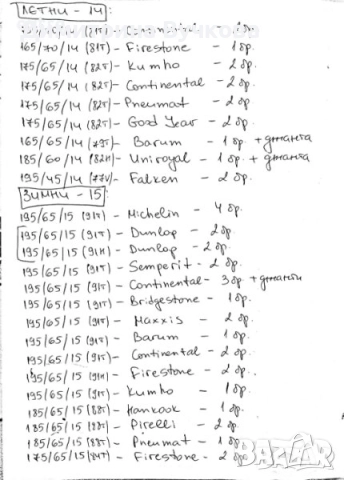 ЛЕТНИ - 14
165/70/14 (81T) - Firestone - 1 бр.
175/65/14 (82T) - Kumho - 2 бр.
175/65/14 (82T) - Continental - 2 бр.
175/65/14 (82T) - Pneumat - 2 бр
175/65/14 (82T) - Good Year - 2 бр.
165/65/14 (79T) - Barum - 1 бр + джанта
185/60/14 (82H) - Uniroyal - 1 бр + джанта
195/45/14 (77V) - Falken - 2 бр.
ЗИМНИ - 15
195/65/15 (91T) - Michelin - 4 бр.
195/65/15 (91T) - Dunlop - 2 бр.
195/65/15 (91H) - Dunlop - 2 бр.
195/65/15 (91T) - Semperit - 2 бр.
195/65/15 (91T) - Continental - 3 бр + джанти
195/65/15 (91T) - Bridgestone - 1 бр.
195/65/15 (91T) - Maxxis - 2 бр.
195/65/15 (91T) - Barum - 1 бр.
195/65/15 (91T) - Continental - 2 бр.
195/65/15 (91H) - Firestone - 2 бр.
195/65/15 (91T) - Kumho - 1 бр.
185/65/15 (88T) - Hankook - 1 бр.
185/65/15 (88T) - Pirelli - 2 бр.
185/65/15 (88T) - Pneumat - 1 бр
175/65/15 (84T) - Firestone - 2 бр
BAZAR